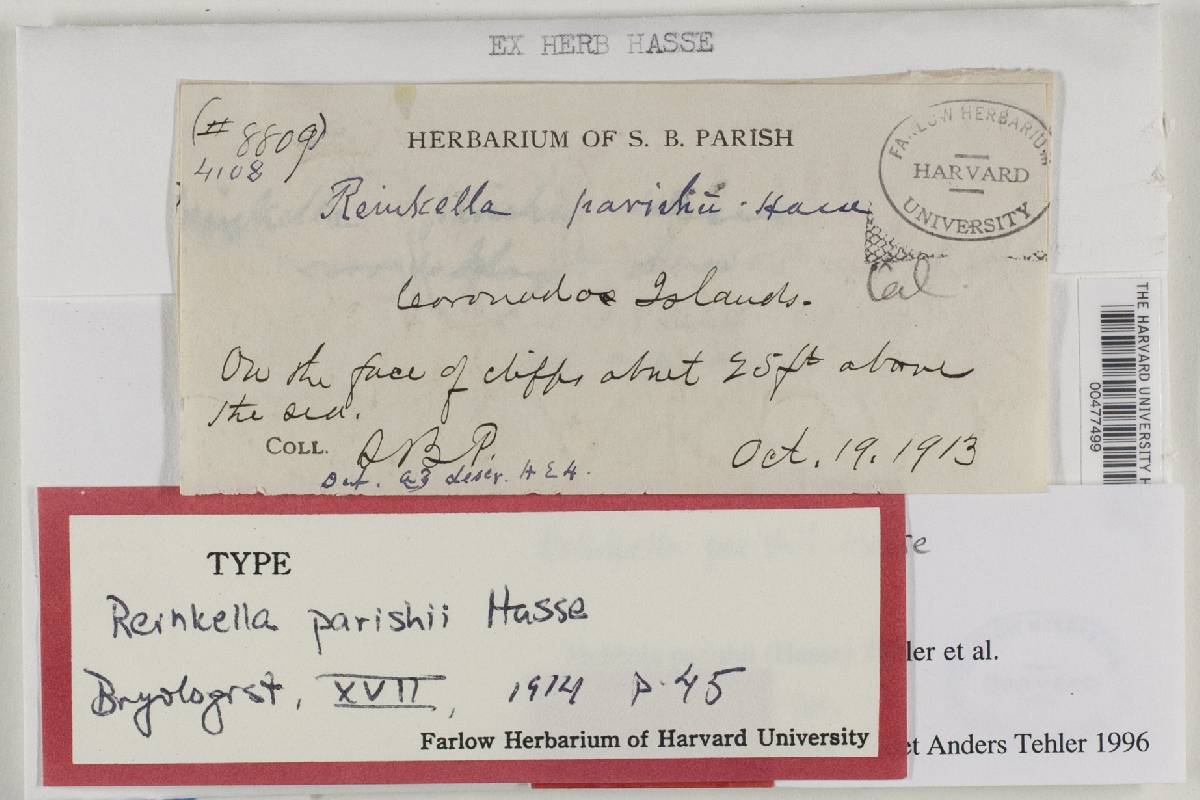 EX HERB HASSE
(# 8809)
4108
HERBARIUM OF S. B. PARISH
FARLOW HERBARIUM
HARVARD
UNIVERSITY
Reinkella parishii. Hasse
Cal.
Coronados Islands.
On the face of cliffs about 25 ft above
the sea.
COLL. S B P.
Oct. 19. 1913
Det. as descr. H E H.
THE HARVARD UNIVERSITY H
00477499
TYPE
Reinkella parishii Hasse
Bryologist, XVII, 1914 p. 45
Farlow Herbarium of Harvard University
ler et al.
et Anders Tehler 1996